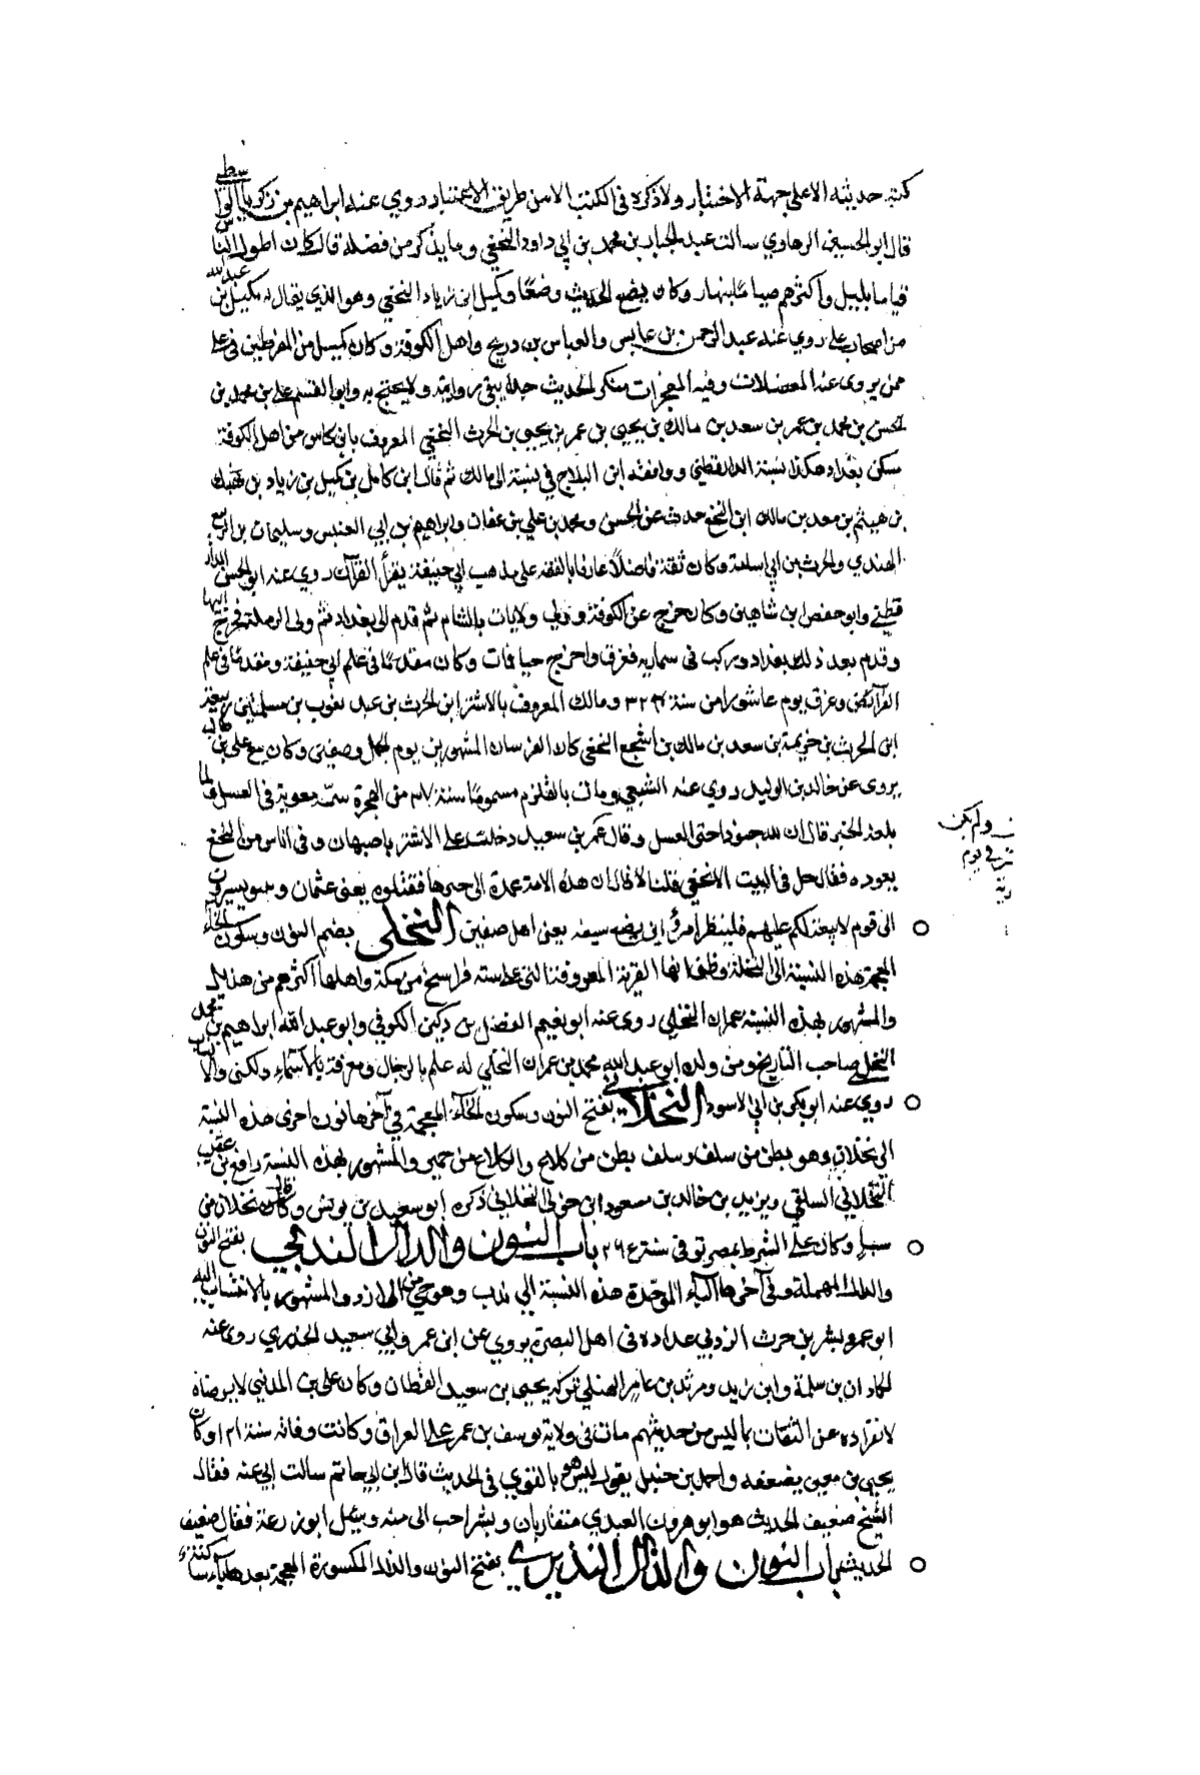 كتبة حديثه الا على جهة الاختبار ولا ذكره في الكتب الا من طريق الاعتبار روي عنه ابراهيم بن زكريا الواسطي
قال ابو الحسين الرهاوي سالت عبد الجبار بن محمد بن ابي داود النخعي وما يذكر من فضله قال كان اطول الناس
قياما بليل واكثرهم صياما بنهار وكان يضع الحديث وضعا وكميل ابن زياد النخعي وهو الذي يقال له كميل بن عبد الله
من اصحاب علي روي عنه عبد الرحمن بن عابس والعباس بن دريح واهل الكوفة وكان كميل من المفرطين في علي
ممن يروى عنه المعضلات وفيه المعجزات منكر الحديث جدا يتقى روايته ولا يحتج به وابو القسم علي بن محمد بن
الحسن بن محمد بن عمر بن سعد بن مالك بن يحيى بن عمر بن يحيى بن الحرث النخعي المعروف بابن كاس من اهل الكوفة
سكن بغداد هكذا نسبة الدارقطني ووافقه ابن الثلاج في نسبة الى مالك ثم قال ابن كامل بن كميل بن زياد بن نهيك
بن هيثم بن سعد بن مالك ابن النخع حدث عن الحسن ومحمد بن علي بن عفان وابراهيم بن ابي العنبس وسليمان بن الربيع
الهندي والحرث بن ابي اسامة وكان ثقة فاضلا عارفا بالفقه على مذهب ابي حنيفة يقرأ القرآن روي عنه ابو الحسن الدار
قطني وابو حفص ابن شاهين وكان خرج عن الكوفة وولي ولايات بالشام ثم قدم الى بغداد ثم ولى الرملة فخرج اليها
وقدم بعد ذلك بغداد وركب في سمارية فغرق واخرج حيا فمات وكان مقدما في علم ابي حنيفة ومقدما في علم
القرآن وغرق يوم عاشورا من سنة ٣٢٤ ومالك المعروف بالاشتر ابن الحرث بن عبد يغوث بن مسلمة بن ربيعة
ابن الحرث بن خزيمة بن سعد بن مالك بن اشجع النخعي كان الفرسان المشهورين يوم الجمل وصفين وكان مع علي بن ابي طالب
يروى عن خالد بن الوليد روي عنه الشعبي ومات بالقلزم مسموما سنة ٣٧ من الهجرة سمّه معوية في العسل فلما
بلغه الخبر قال ان لله جنودا حتى العسل وقال عمر بن سعيد دخلت على الاشتر باصبهان وفي اناس من النخع
يعوده فقال هل في البيت الا نخعي قلنا لا قال ان هذه الامة عمدت الى خيرها فقتلوه يعني عثمان وسيسيرون
الى قوم لا بيعة لكم عليهم فلينظر امرؤ اين يضع سيفه يعنى اهل صفين النخلى بضم النون وسكون الخاء
المعجمة هذه النسبة الى النخلة وظني انها القرية المعروفة التي على ستة فراسخ من مكة واهلها اكثرهم من هذيل
والمشهور بهذه النسبة عمران النخلي روى عنه ابو نعيم الفضل بن دكين الكوفي وابو عبد الله ابراهيم بن محمد
النخلي صاحب التاريخ ومن ولده ابو عبد الله محمد بن عمران النخلي له علم بالرجال ومعرفة بالاسماء ولكنى والانساب
روي عنه ابو بكر بن ابي الاسود النخلاني بفتح النون وسكون الخاء المعجمة في آخرها نون اخرى هذه النسبة
الى نخلان وهو بطن من سلف وسلف بطن من كلاع والكلاع من حمير والمشهور بهذه النسبة رافع بن عقيب
النخلاني السلفي ويزيد بن خالد بن مسعود ابن خولي النخلاني ذكره ابو سعيد بن يونس وقال كان نخلان من
سبا وكان على الشرط بمصر توفى سنة ٢٦٤ باب النون والدال الندبي بفتح النون
والدال المهملة وفي آخرها الباء الموحّدة هذه النسبة الي ندب وهو حي من الازد والمشهور بالانتساب اليه
ابو عمرو بشر بن حرث الزدبي عداده في اهل البصرة يروي عن ابن عمر وابي سعيد الخدري روى عنه
الحمادان بن سلمة وابن زيد ومرثد بن عامر الهنلي تركه يحيى بن سعيد القطان وكان علي بن المدني لا يرضاه
لانفراده عن الثقات بما ليس من حديثهم مات في ولاية يوسف بن عمر على العراق وكانت وفاته سنة ١٢١ وكان
يحيى بن معين يضعفه واحمد بن حنبل يقول ليس هو بالقوي في الحديث قال ابن ابي حاتم سالت ابي عنه فقال
الشيخ ضعيف الحديث هو ابو هرون العبدي متقاربان وبشر احب الى منه وسئل ابو زرعة فقال ضعيف
الحديث باب النون والذال النذيري بفتح النون والذال المكسورة المعجمة بعدها ياء ساكنة
ولم يكن
في يوم